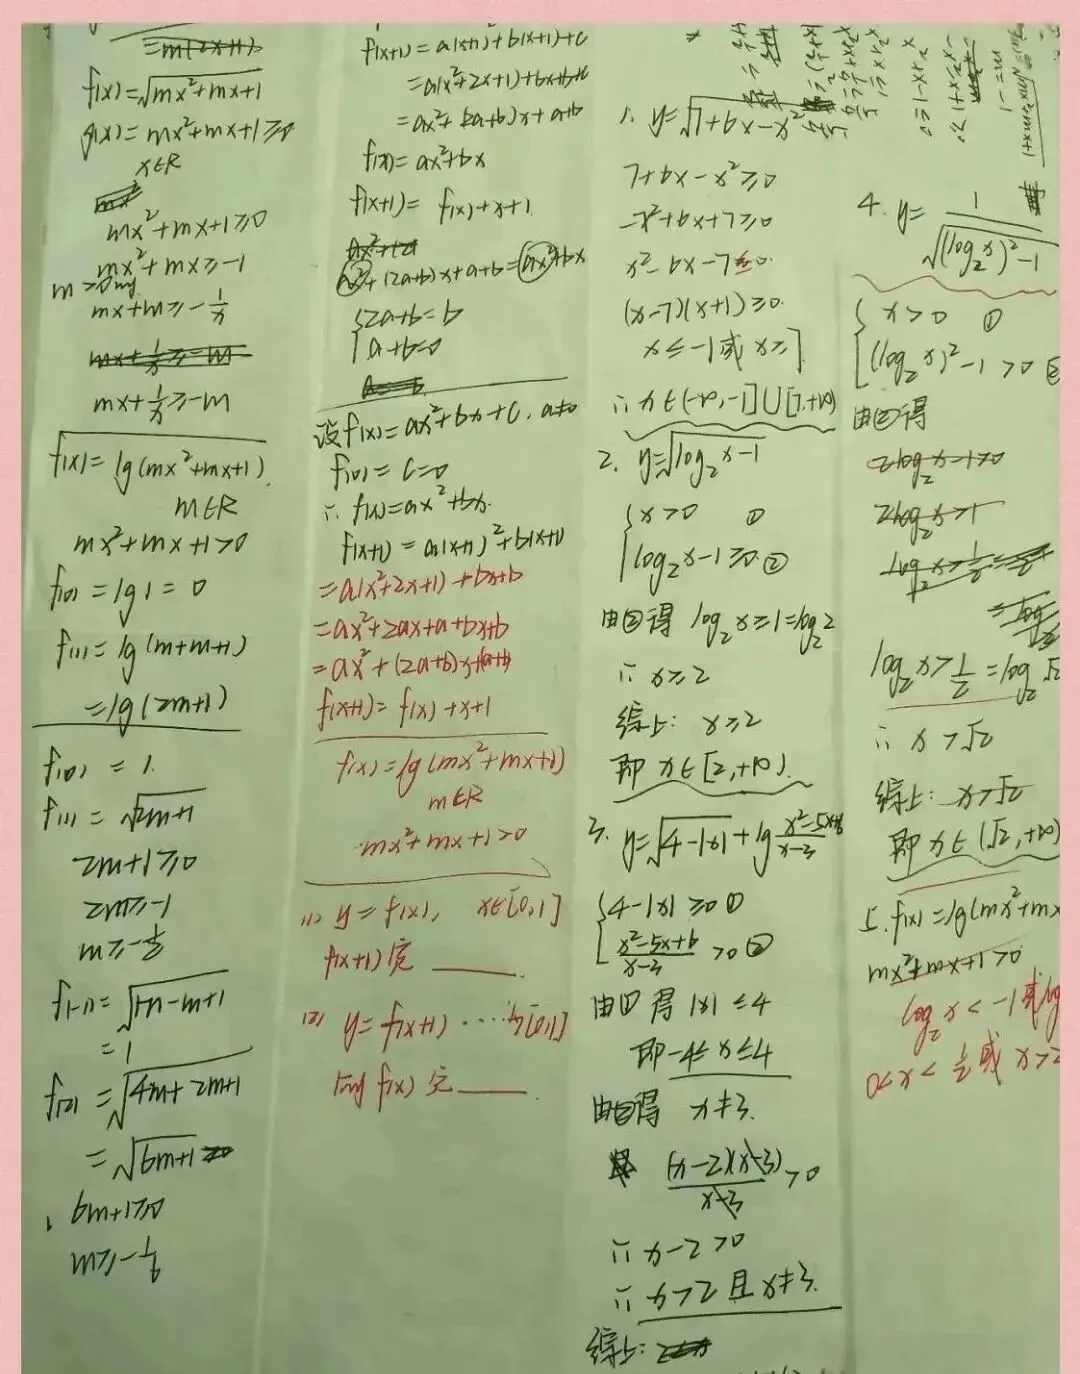 f(x)=√(mx²+mx+1)
g(x)=mx²+mx+1≥0
x∈R
mx²+mx+1≥0
mx²+mx≥-1
mx+m≥-1/x
mx+1/x≥-m
f(x)=lg(mx²+mx+1)
m∈R
mx²+mx+1>0
f(0)=lg1=0
f(1)=lg(m+m+1)
=lg(2m+1)
f(0)=1
f(1)=√(2m+1)
2m+1≥0
2m≥-1
m≥-1/2
=1
f(2)=√(4m+2m+1)
=√(6m+1)
6m+1≥0
m≥-1/6
f(x+1)=a(x+1)²+b(x+1)+c
=a(x²+2x+1)+bx+b+c
=ax²+(2a+b)x+a+b
f(x)=ax²+bx
f(x+1)=f(x)+x+1
ax²+(2a+b)x+a+b=ax²+bx
{2a+b=b
a+b=0
设f(x)=ax²+bx+c,a≠0
f(0)=c=0
∴f(x)=ax²+bx
f(x+1)=a(x+1)²+b(x+1)
=a(x²+2x+1)+bx+b
=ax²+2ax+a+bx+b
=ax²+(2a+b)x+a+b
f(x+1)=f(x)+x+1
f(x)=lg(mx²+mx+1)
m∈R
mx²+mx+1>0
(1) y=f(x), x∈[0,1]
f(x+1)定
(2) y=f(x+1)……[0,1]
f(x)定
1. y=√(7+6x-x²)
7+6x-x²≥0
-x²+6x+7≥0
x²-6x-7≤0
(x-7)(x+1)≥0
x≤-1或x≥7
∴x∈(-∞,-1]∪[7,+∞)
2. y=√(log₂x-1)
{x>0 ①
log₂x-1≥0 ②
由②得 log₂x≥1=log₂2
∴x≥2
综上:x≥2
即x∈[2,+∞)
3. y=√(4-|x|)+lg (x²-5x+6)/(x-3)
{4-|x|≥0 ①
(x²-5x+6)/(x-3)>0 ②
由①得|x|≤4
即-4≤x≤4
由②得 x≠3
(x-2)(x-3)/(x-3)>0
∴x-2>0
∴x>2且x≠3
综上:
m=-1
-x²-x+1≥0
x²+x-1≤0
4. y=1/√((log₂x)²-1)
{x>0 ①
(log₂x)²-1>0 ②
由②得
2log₂x-1>0
2log₂x>1
log₂x>1/2=log₂√2
∴x>√2
综上:x>√2
即x∈(√2,+∞)
5. f(x)=lg(mx²+mx
mx²+mx+1>0
log₂x<-1或
0<x<1/2或x>2